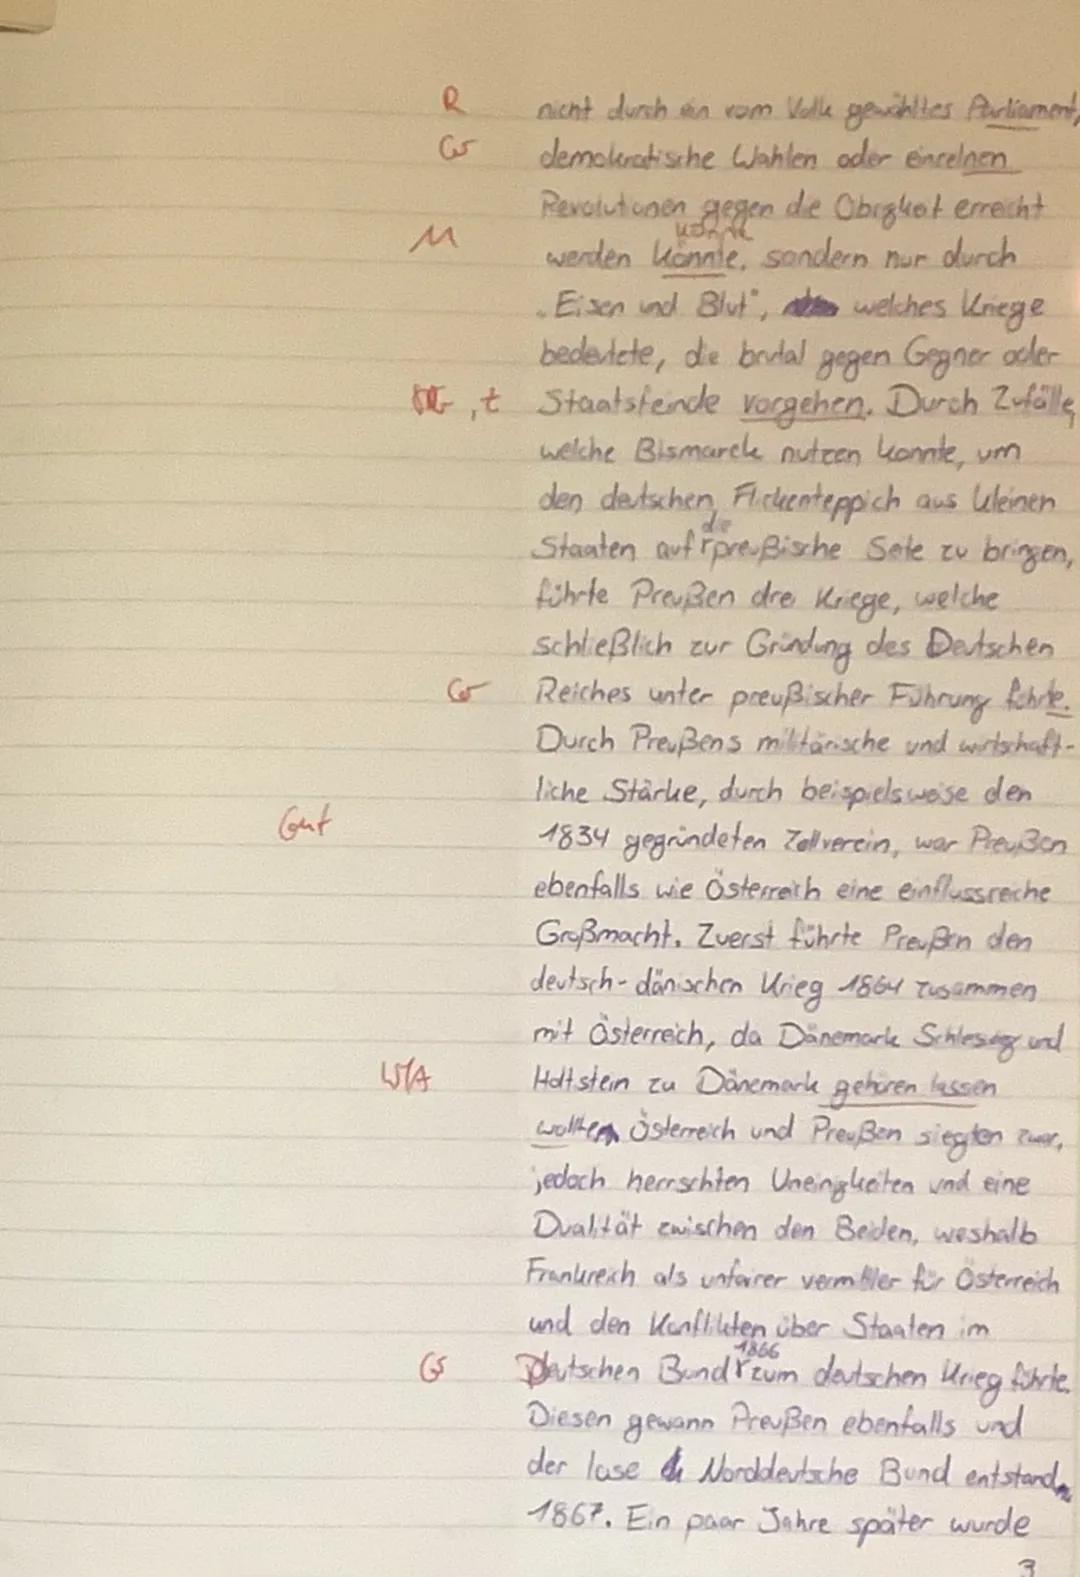 R nicht durch ein vom Volk gewähltes Parliament,
Gr demokratische Wahlen oder einzelnen
Revolutionen gegen die Obrigkeit erreicht
könne
M werden könnte, sondern nur durch
„Eisen und Blut", welches Kriege
bedeutete, die brutal gegen Gegner oder
, t Staatsfeinde vorgehen. Durch Zufälle,
welche Bismarck nutzen konnte, um
den deutschen Flickenteppich aus kleinen
die
Staaten auf preußische Seite zu bringen,
führte Preußen drei Kriege, welche
schließlich zur Gründung des Deutschen
Gr Reiches unter preußischer Führung führte.
Durch Preußens militärische und wirtschaft-
liche Stärke, durch beispielsweise den
Gut 1834 gegründeten Zollverein, war Preußen
ebenfalls wie Österreich eine einflussreiche
Großmacht. Zuerst führte Preußen den
deutsch-dänischen Krieg 1864 zusammen
mit Österreich, da Dänemark Schleswig und
W/A Holtstein zu Dänemark gehören lassen
wollte Österreich und Preußen siegten zwar,
jedoch herrschten Uneinigkeiten und eine
Dualität zwischen den Beiden, weshalb
Frankreich als unfairer vermittler für Österreich
und den Konflikten über Staaten im
1866
Gr Deutschen Bund zum deutschen Krieg führte.
Diesen gewann Preußen ebenfalls und
der lose Norddeutsche Bund entstand
1867. Ein paar Jahre später wurde
3